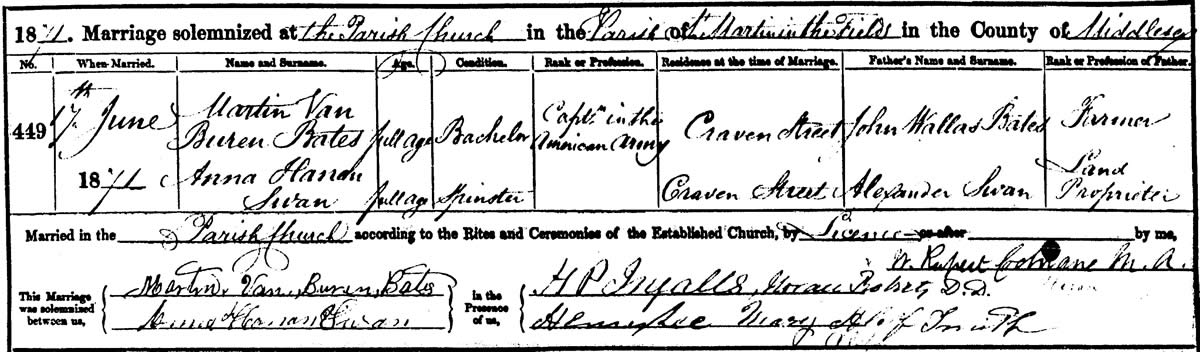 1871. Marriage solemnized at the Parish Church in the Parish of St Martin in the Fields in the County of Middlesex
No. When Married. Name and Surname. Age. Condition. Rank or Profession. Residence at the time of Marriage. Father's Name and Surname. Rank or Profession of Father.
449 17th June 1871 Martin Van Buren Bates full age Bachelor Captn in the American Army Craven Street John Wallas Bates Farmer
Anna Hanan Swan full age Spinster Craven Street Alexander Swan Land Proprieter
Married in the Parish Church according to the Rites and Ceremonies of the Established Church, by Licence or after by me,
W. Rupert Cochrane M.A.
This Marriage was solemnized between us, Martin Van Buren Bates
Anna Hanan Swan
in the Presence of us, H P Ingalls, D.D.
Henry Lee Mary